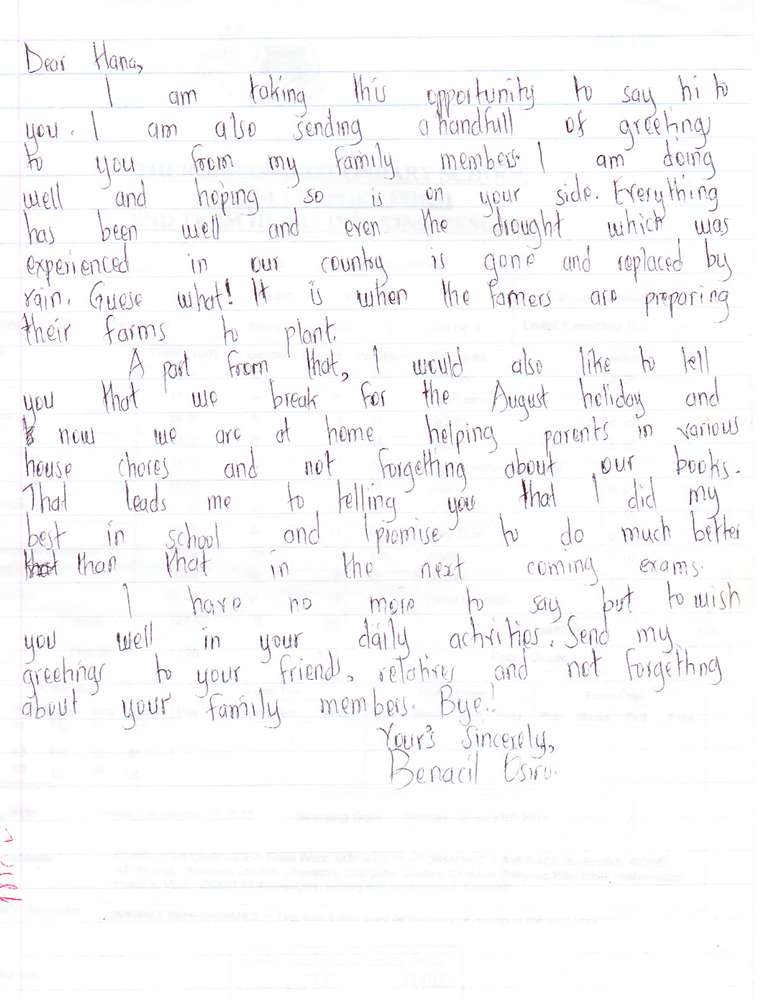 Dear Hana,
I am taking this opportunity to say hi to
you. I am also sending a handfull of greeting
to you from my family members. I am doing
well and hoping so is on your side. Everything
has been well and even the drought which was
experienced in our country is gone and replaced by
rain. Guese what! It is when the famers are preparing
their farms to plant.
A part from that, I would also like to tell
you that we break for the August holiday and
now we are at home helping parents in various
house chores and not forgetting about our books.
That leads me to telling you that I did my
best in school and I promise to do much better
than that in the next coming exams.
I have no more to say but to wish
you well in your daily activities. Send my
greetings to your friends, relatives and not forgetting
about your family members. Bye!
Your's Sincerely,
Benacil Esiru.